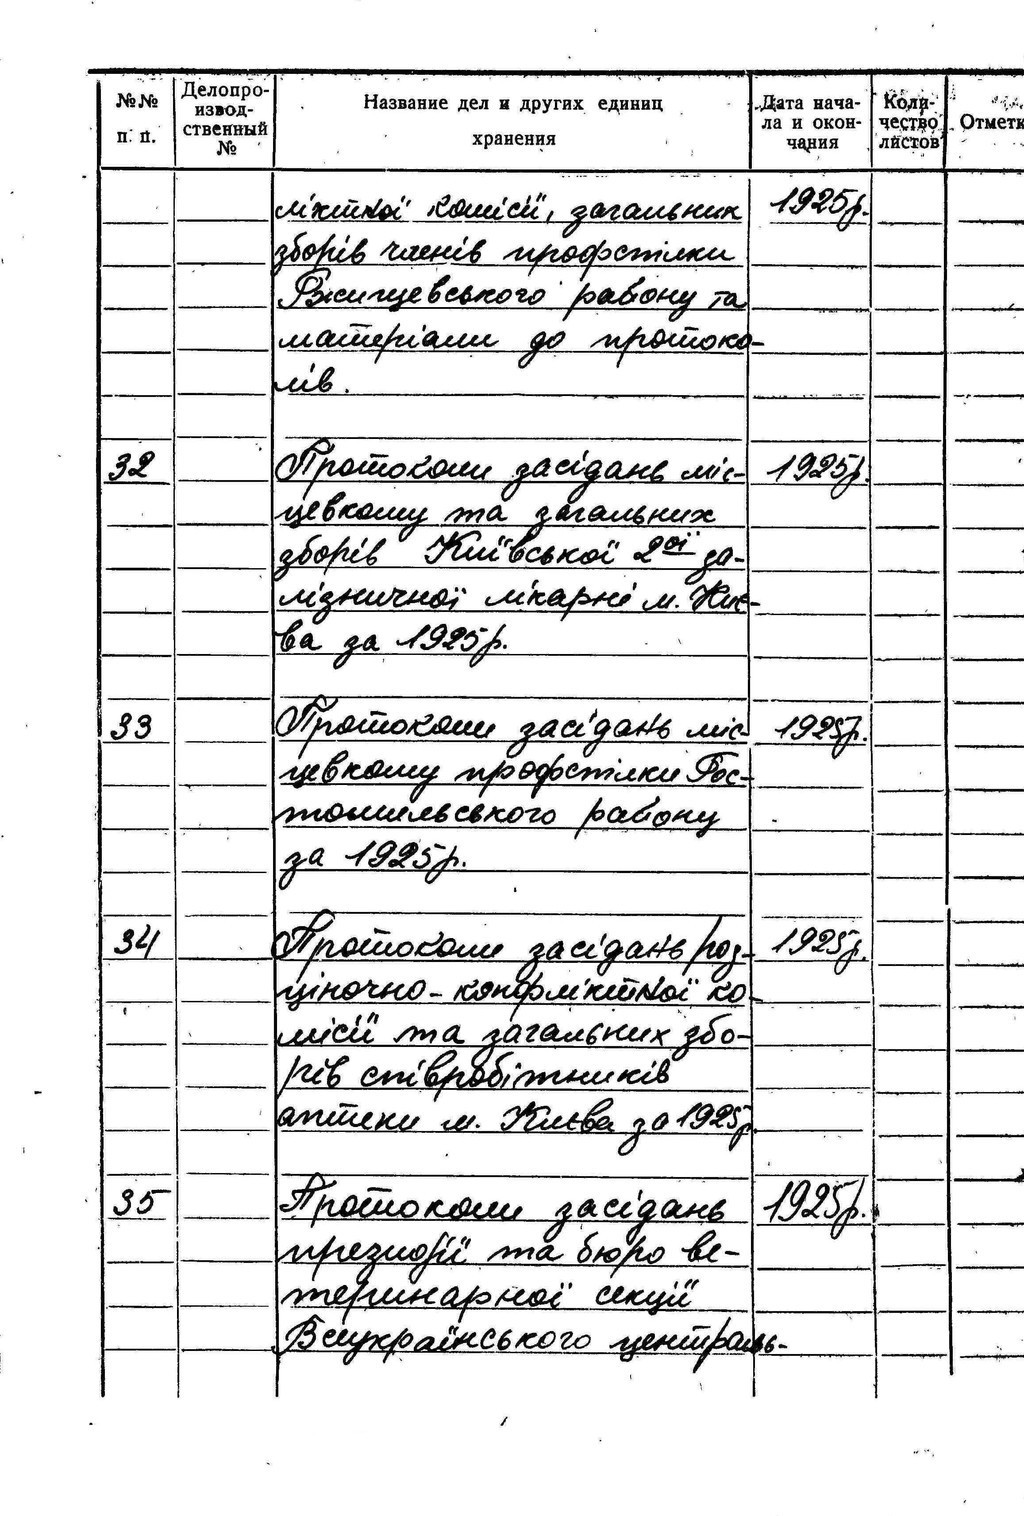 №№ п. п.
Делопро-
извод-
ственный
№
Название дел и других единиц
хранения
Дата нача-
ла и окон-
чания
Коли-
чество
листов
Отметк
ліктної комісії, загальних 1925р.
зборів членів профспілки
Ржищевського району та
матеріали до протоко-
лів.
32 Протоколи засідань міс- 1925р.
цевкому та загальних
зборів Київської 2ої за-
лізничної лікарні м. Киє-
ва за 1925р.
33 Протоколи засідань міс- 1925р.
цевкому профспілки Гос-
томельського району
за 1925р.
34 Протоколи засідань роз- 1925р.
ціночно-конфліктної ко-
місії та загальних збо-
рів співробітників
аптеки м. Києва за 1925р.
35 Протоколи засідань 1925р.
президії та бюро ве-
теринарної секції
Всеукраїнського централь-